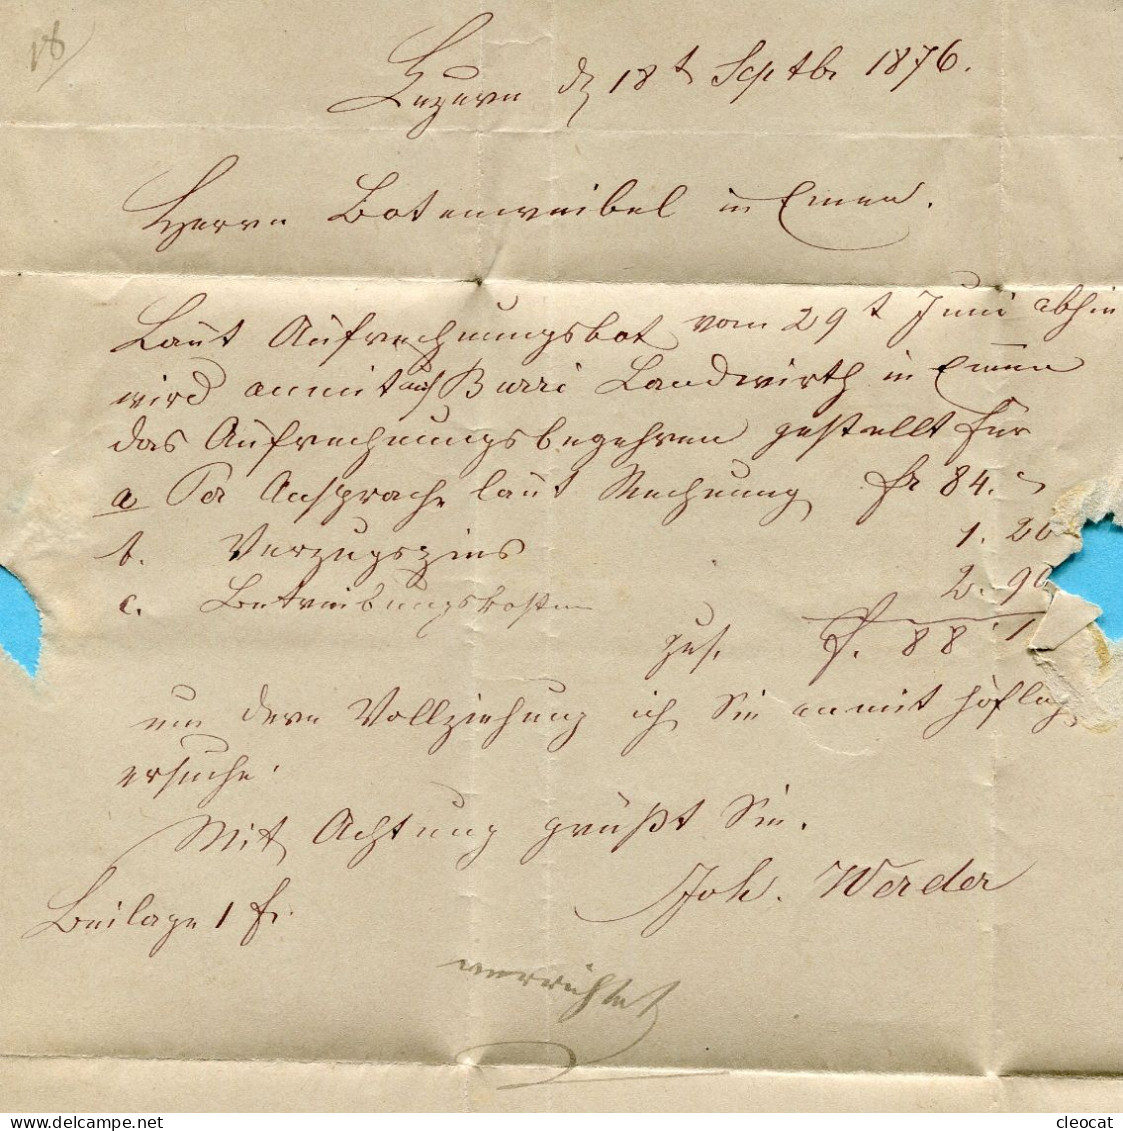 18
Luzern d 18t Septbr 1876.
Herrn Botenweibel in Emen.
Laut Aufrechnungsbot vom 29t Juni abhin
wird anmit auf Burri Landwirth in Emen
das Aufrechnungsbegehren gestellt für
a Per Ansprache laut Rechnung fr 84. "
b. Verzugszins 1. 20
c. Betreibungskosten 2. 90
zus. fr. 88. 1
um dern Vollziehung ich Sie anmit höflich
ersuche.
Mit Achtung grüßt Sie.
Joh. Werder
Beilage 1 fr.
verrichtet
cleocat